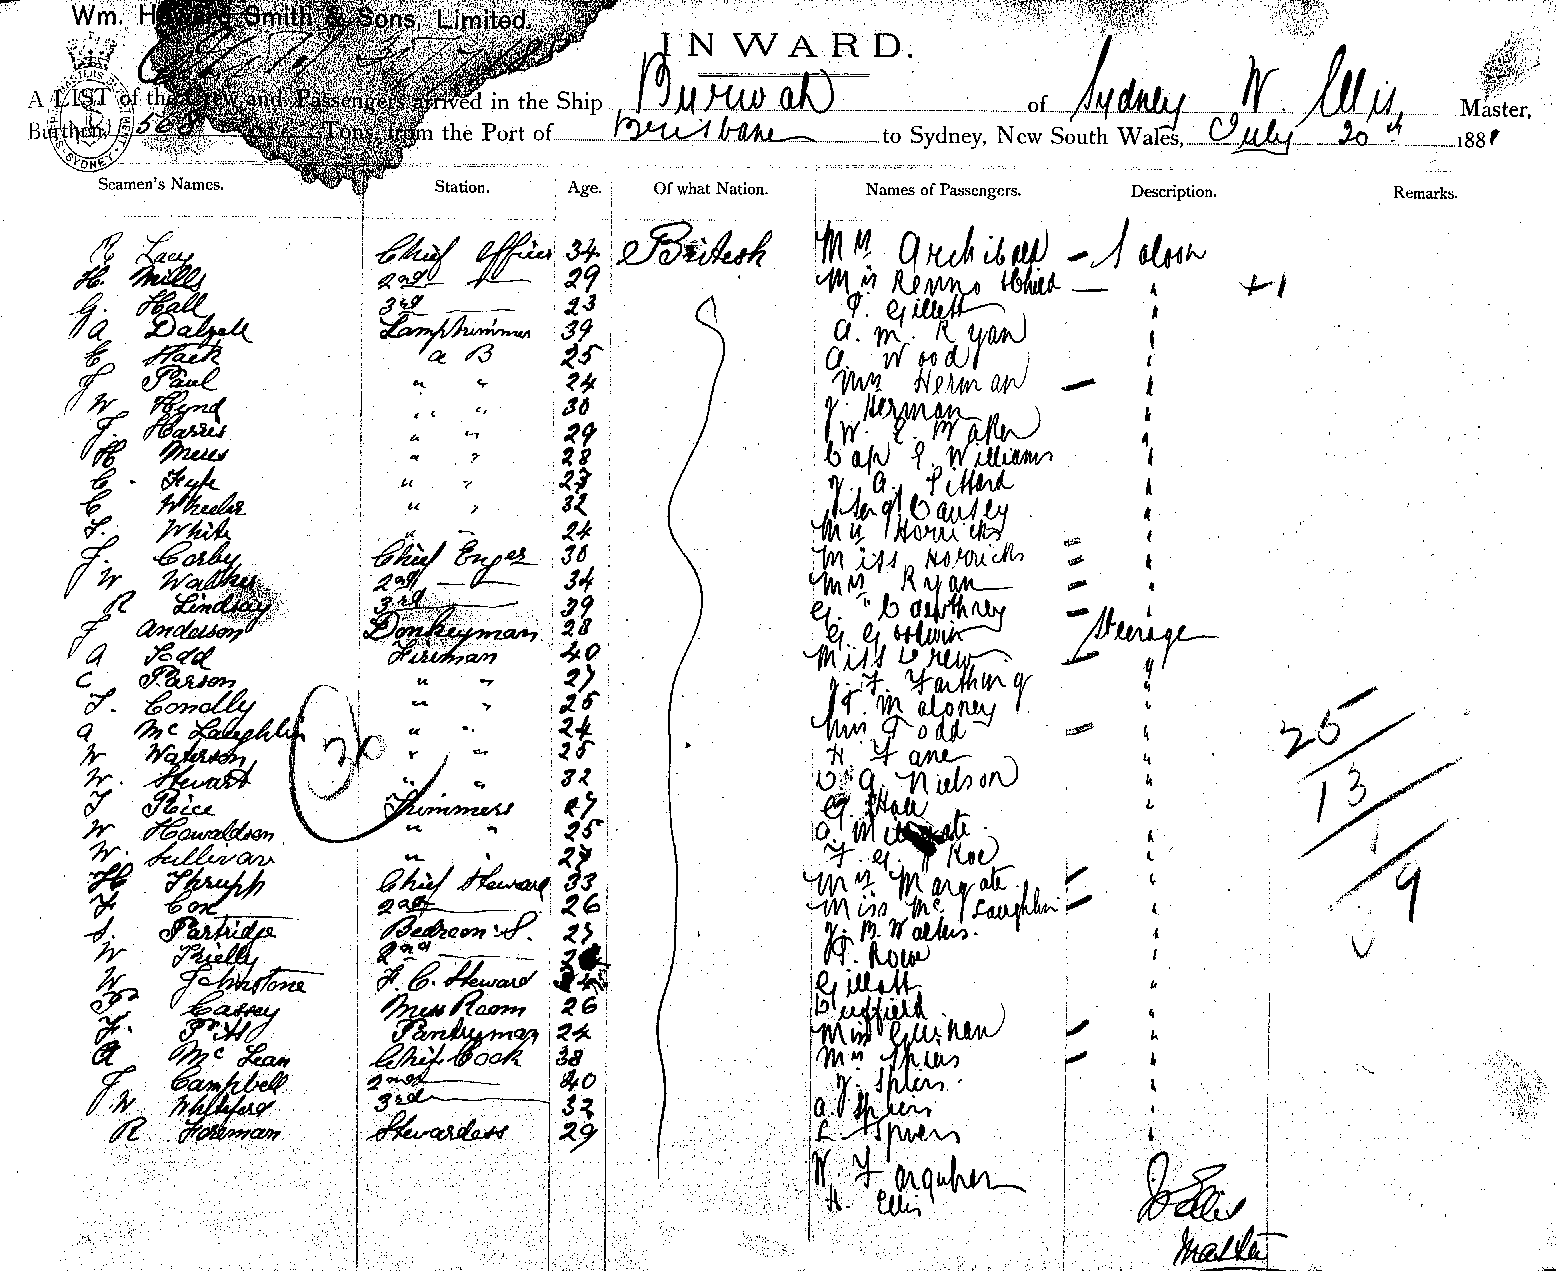 Wm. Howard Smith & Sons, Limited.
INWARD.
A LIST of the Crew and Passengers arrived in the Ship Burwah of Sydney W. Ellis Master,
Burthen 568 Tons, from the Port of Brisbane to Sydney, New South Wales, July 20th 1881
Seamen's Names. Station. Age. Of what Nation. Names of Passengers. Description. Remarks.
R Lacy Chief Officer 34 British Mrs Archibald — Saloon
H. Mills 2nd — 29 Mrs Renno & Child — " + 1
G. Hall 3rd — 23 Gillett "
A Dalzell Lamptrimmer 39 A. M. Ryan "
Hack A B 25 A Wood "
J Paul " " 24 Mrs Herman — "
W Hynd " " 30 J. Herman "
J. Harris " " 29 W. E. Maken "
H Meres " " 28 Cap Williams "
C. Fyfe " " 27 J. A. Pittard "
C Wheeler " " 32 Causey "
F. White " " 24 Mrs Horricks "
J. Corby Chief Enger 30 Miss Horricks = "
W Walker 2nd — 34 Mrs Ryan = "
R Lindsay 3rd — 39 G. Cawthrey — "
J Anderson Donkeyman 28 G Goldwin Steerage
A Todd Fireman 40 Miss Crew — "
C Parson " " 27 J. F. Farthing "
T. Conolly " " 25 T. Maloney "
A McLaughlin " " 24 Mrs Todd — " 25
W Waterson " " 25 H. Fane "
W. Stewart " " 32 A. Nielson " 13
T Rice Trimmers 27 G. Hall "
W Howaldson " " 25 A. "
W. Sullivan " " 27 F. G. Roe "
H Thrupp Chief Steward 33 Mrs Margate — " 9
F Cox 2nd — 26 Miss McLaughlin — "
S. Partridge Bedroom S. 27 J. B. Walters "
W Rielly 2nd — T. Rowe "
W Johnstone F. C. Steward Gillott "
Cassey Mess Room 26 Duffield "
F. Pitt Pantryman 24 Miss Cullinan — "
A McLean Chief Cook 38 Mrs Spiers — "
J Campbell 2nd — 40 J. Spiers "
J W Whiteford 3rd — 32 A. Spiers "
R Foreman Stewardess 29 L. Spiers "
36
W. Farquhar
H. Ellis
W Ellis
Master